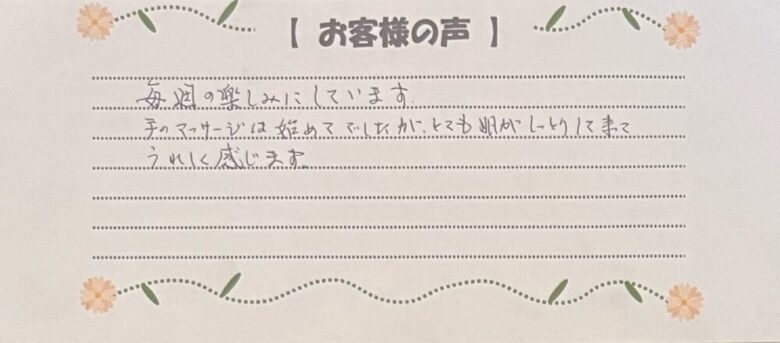 【 お客様の声 】
毎回の楽しみにしています。
手のマッサージは始めてでしたが、とても肌がしっとりして来て
うれしく感じます。